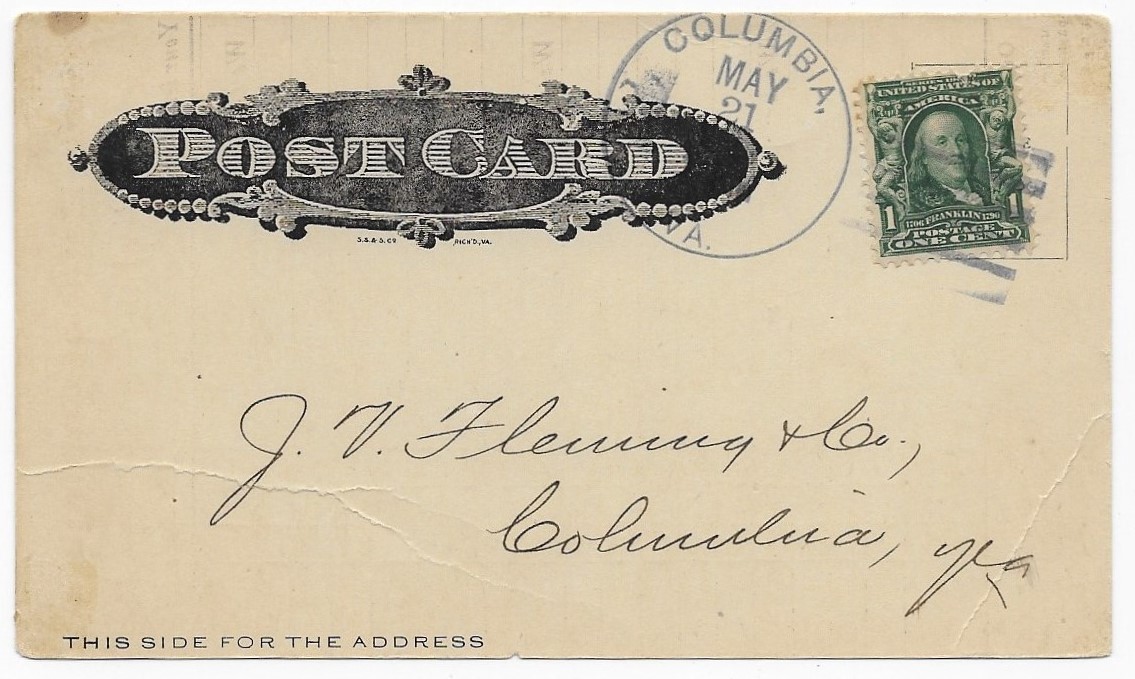 POST CARD
S.S.& S. CO RICH'D, VA.
COLUMBIA,
MAY
21
VA.
UNITED STATES OF
AMERICA
1 1706 FRANKLIN 1790 1
POSTAGE
ONE CENT
J. V. Fleming & Co.,
Columbia, Va
THIS SIDE FOR THE ADDRESS